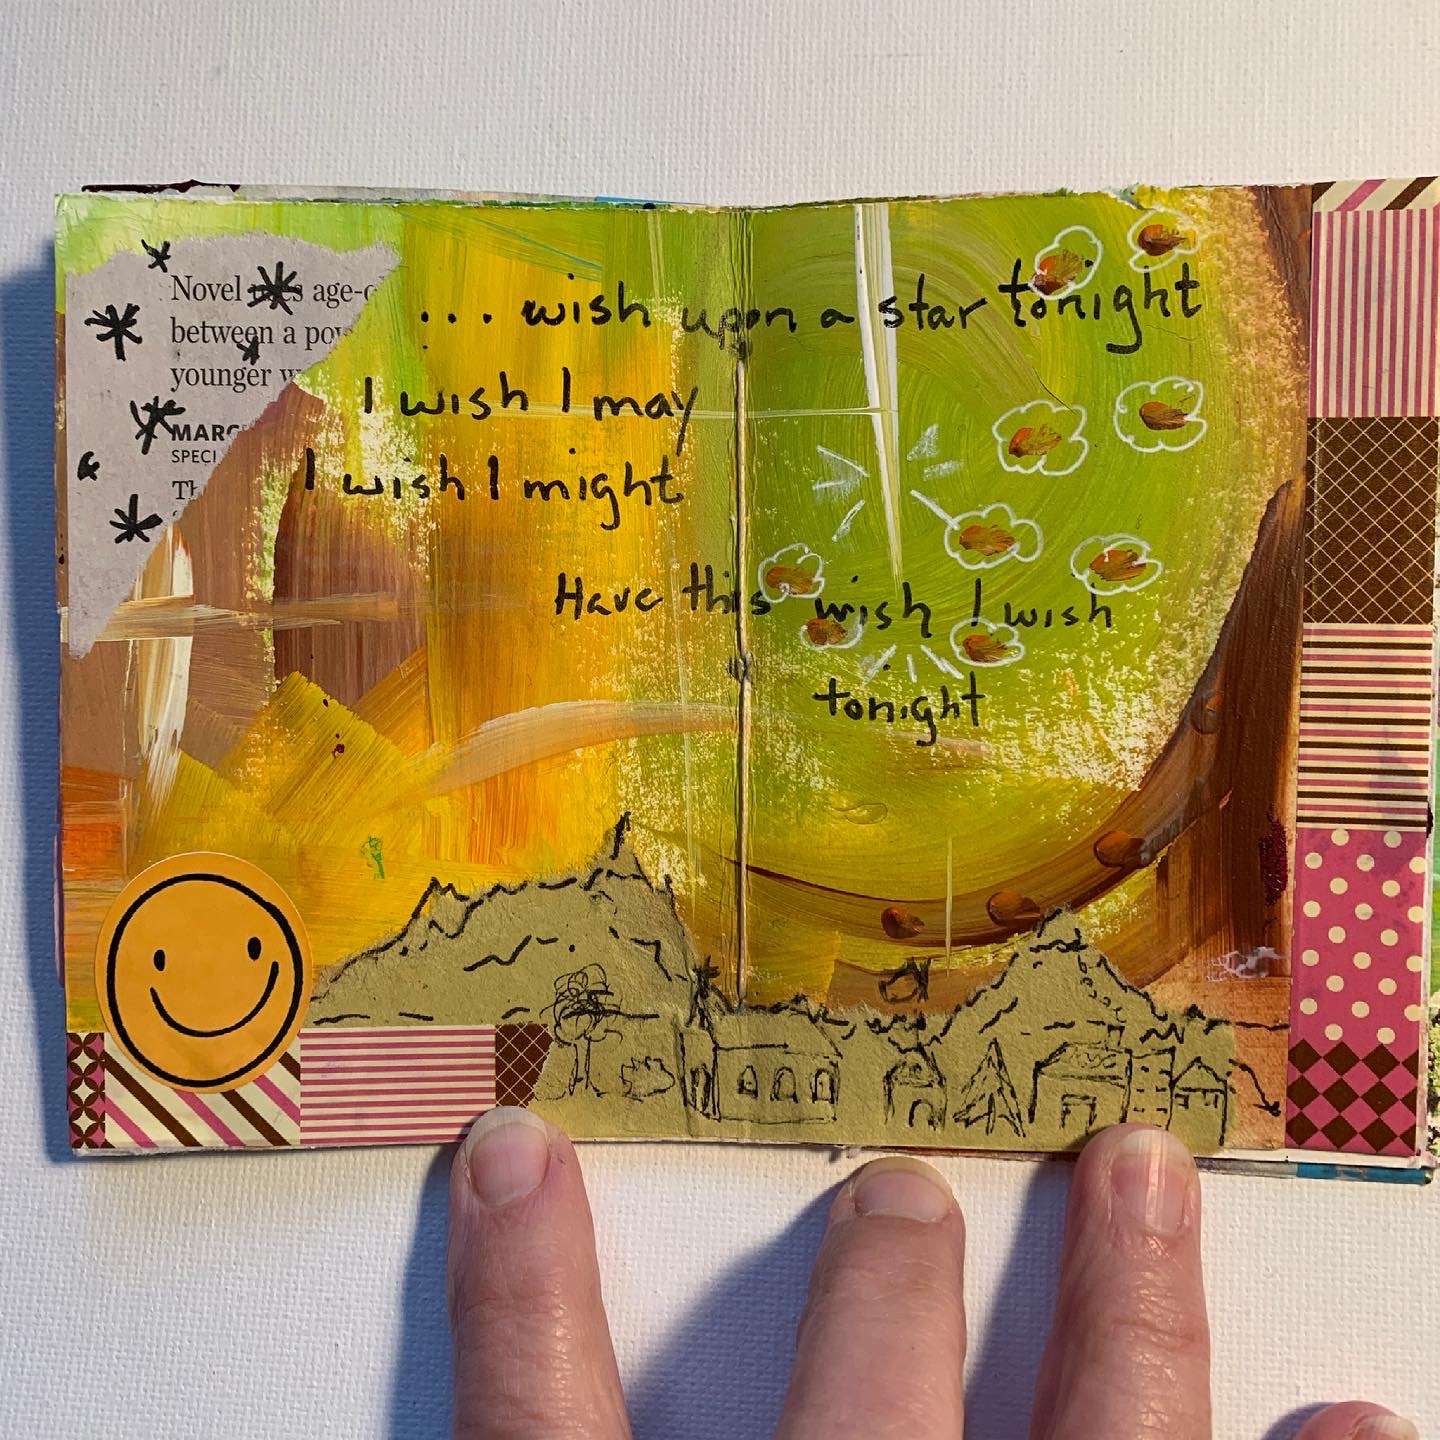 Novel age-
between a
younger
MARC
SPECI
... wish upon a star tonight
I wish I may
I wish I might
Have this wish I wish
tonight